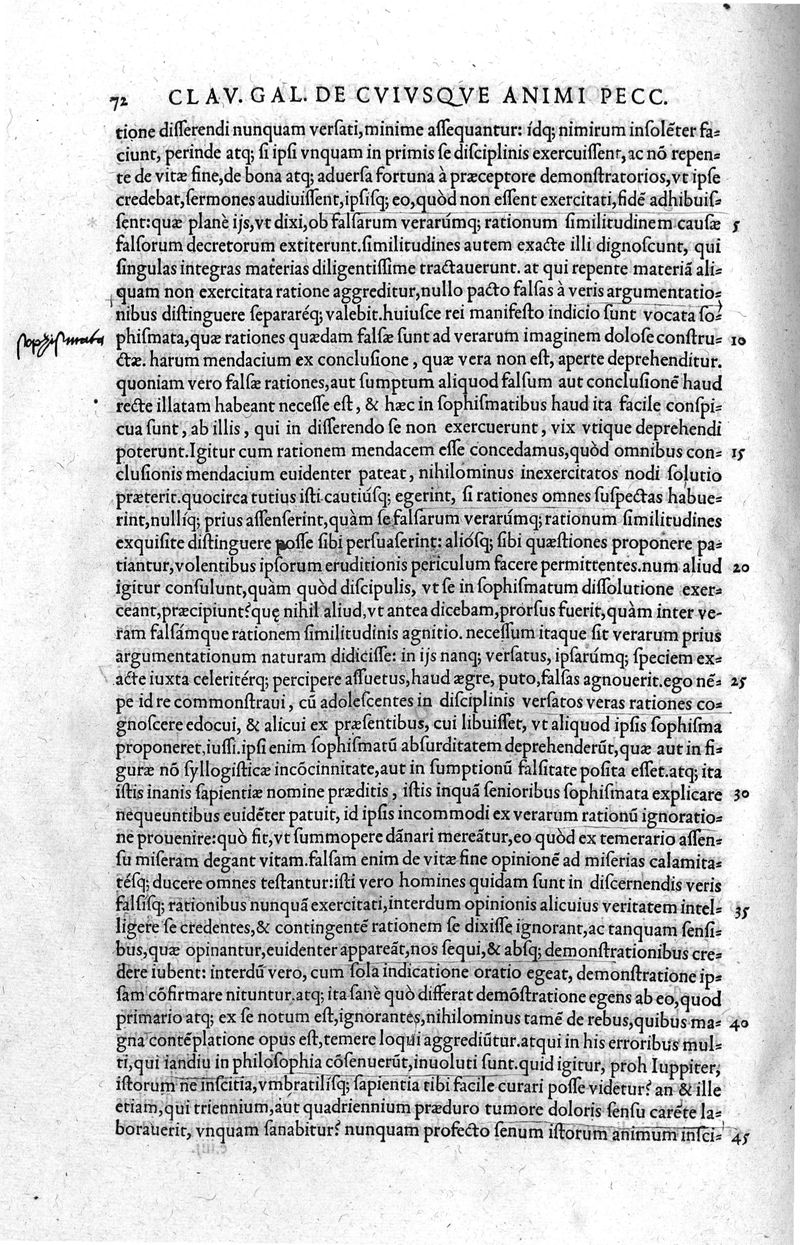 72 CLAV. GAL. DE CVIVSQVE ANIMI PECC.
tione disserendi nunquam versati,minime assequantur: ídq; nimirum insolẽter fa=
ciunt, perinde atq; si ipsi vnquam in primis se disciplinis exercuissent, ac nõ repen=
te de vitæ fine,de bona atq; aduersa fortuna à præceptore demonstratorios,vt ipse
credebat,sermones audiuissent,ipsisq; eo,quòd non essent exercitati,fidẽ adhibuis=
sent:quæ planè ijs,vt dixi,ob falsarum verarúmq; rationum similitudinem causæ 5
falsorum decretorum extiterunt.similitudines autem exacte illi dignoscunt, qui
singulas integras materias diligentissime tractauerunt. at qui repente materiã ali=
quam non exercitata ratione aggreditur,nullo pacto falsas à veris argumentatio=
nibus distinguere separaréq; valebit.huiusce rei manifesto indicio sunt vocata so=
sophismata phismata,quæ rationes quædam falsæ sunt ad verarum imaginem dolose constru= 10
ctæ. harum mendacium ex conclusione, quæ vera non est, aperte deprehenditur.
quoniam vero falsæ rationes,aut sumptum aliquod falsum aut conclusionẽ haud
recte illatam habeant necesse est, & hæc in sophismatibus haud ita facile conspi=
cua sunt, ab illis, qui in disserendo se non exercuerunt, vix vtique deprehendi
poterunt.Igitur cum rationem mendacem esse concedamus,quòd omnibus con= 15
clusionis mendacium euidenter pateat, nihilominus inexercitatos nodi solutio
præterit.quocirca tutius isti cautiúsq; egerint, si rationes omnes suspectas habue=
rint,nullíq; prius assenserint,quàm se falsarum verarúmq; rationum similitudines
exquisite distinguere posse sibi persuaserint: aliósq; sibi quæstiones proponere pa=
tiantur,volentibus ipsorum eruditionis periculum facere permittentes.num aliud 20
igitur consulunt,quàm quòd discipulis, vt se in sophismatum dissolutione exer=
ceant,præcipiunt?quę nihil aliud,vt antea dicebam,prorsus fuerit,quàm inter ve-
ram falsámque rationem similitudinis agnitio. necessum itaque sit verarum prius
argumentationum naturam didicisse: in ijs nanq; versatus, ipsarúmq; speciem ex=
acte iuxta celeritérq; percipere assuetus,haud ægre, puto,falsas agnouerit.ego nẽ= 25
pe id re commonstraui, cũ adolescentes in disciplinis versatos veras rationes co=
gnoscere edocui, & alicui ex præsentibus, cui libuisset, vt aliquod ipsis sophisma
proponeret,iussi.ipsi enim sophismatũ absurditatem deprehenderũt,quæ aut in fi=
guræ nõ syllogisticæ incõcinnitate,aut in sumptionũ falsitate posita esset.atq; ita
istis inanis sapientiæ nomine præditis, istis inquã senioribus sophismata explicare 30
nequeuntibus euidẽter patuit, id ipsis incommodi ex verarum rationũ ignoratio=
ne prouenire:quò fit,vt summopere dãnari mereãtur,eo quòd ex temerario assen=
su miseram degant vitam.falsam enim de vitæ fine opinionẽ ad miserias calamita=
tésq; ducere omnes testantur:isti vero homines quidam sunt in discernendis veris
falsisq; rationibus nunquã exercitati,interdum opinionis alicuius veritatem intel= 35
ligere se credentes,& contingentẽ rationem se dixisse ignorant,ac tanquam sensi=
bus,quæ opinantur,euidenter appareãt,nos sequi,& absq; demonstrationibus cre=
dere iubent: interdũ vero, cum sola indicatione oratio egeat, demonstratione ip=
sam cõfirmare nituntur.atq; ita sanè quò differat demõstratione egens ab eo,quod
primario atq; ex se notum est,ignorantes,nihilominus tamẽ de rebus,quibus ma= 40
gna contẽplatione opus est,temere loqui aggrediũtur.atqui in his erroribus mul=
ti,qui iandiu in philosophia cõsenuerũt,inuoluti sunt.quid igitur, proh Iuppiter,
istorum ne inscitia,vmbratilisq; sapientia tibi facile curari posse videtur? an & ille
etiam,qui triennium,aut quadriennium præduro tumore doloris sensu carẽte la=
borauerit, vnquam sanabitur? nunquam profecto senum istorum animum insci= 45